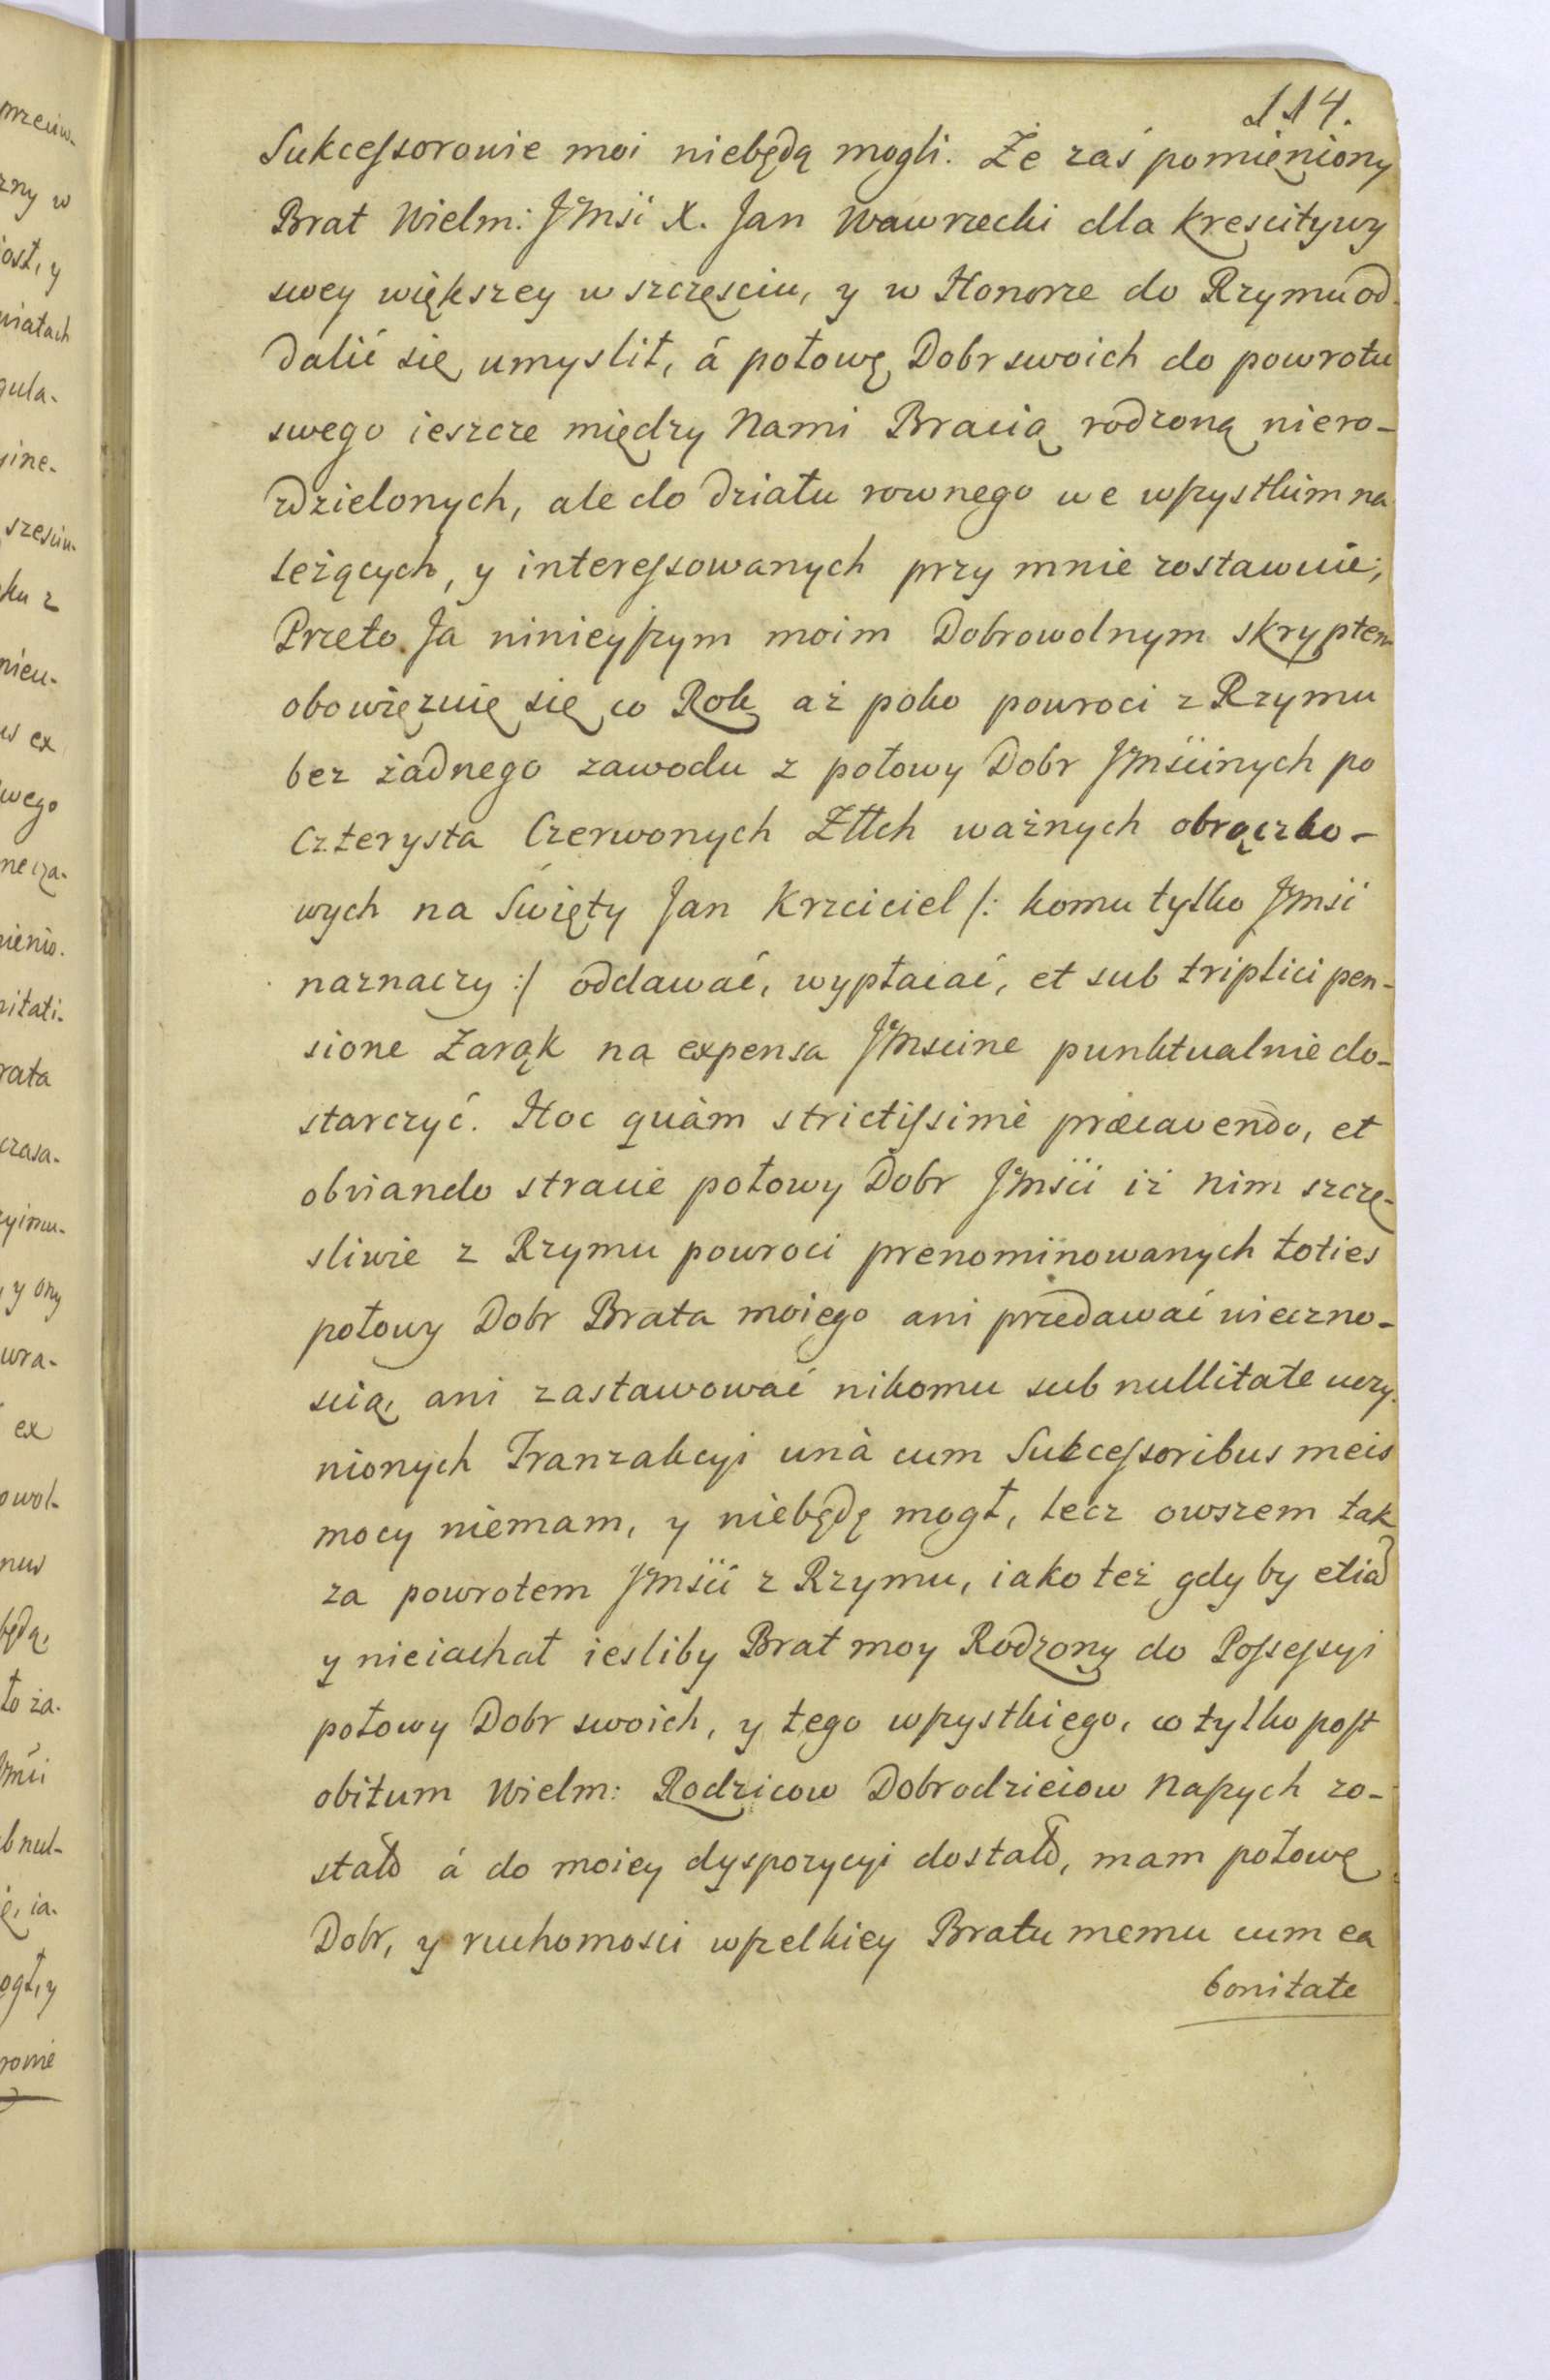 114.
Sukcessorowie moi niebędą mogli. Że zaś pomięniony
Brat Wielm: JMsci X. Jan Wawrzecki dla krescitywy
swey większey w szczęsciu, y w Honorze do Rzymu od-
dalić się umyslił, á połowę Dobr swoich do powrotu
swego ieszcze między Nami Bracią rodzoną niero-
zdzielonych, ale do działu rownego we wszystkim na
leżących, y interessowanych przy mnie zostawuie;
Przeto Ja ninieyszym moim Dobrowolnym skryptem
obowięzuię się co Rok aż poko powroci z Rzymu
bez żadnego zawodu z połowy Dobr JMscinych po
Czterysta Czerwonych Złłch ważnych obrączko-
wych na Swięty Jan Krzciciel /: komu tylko JMsci
naznaczy :/ oddawać, wypłacać, et sub triplici pen-
sione Zarąk na expensa JMscine punktualnie do-
starczyć. Hoc quàm strictissimè præcavendo, et
obviando stracie połowy Dobr JMsci iż nim szczę-
sliwie z Rzymu powroci prenominowanych toties
połowy Dobr Brata moiego ani przedawać wieczno-
scią, ani zastawować nikomu sub nullitate uczy-
nionych Tranzakcyi unà cum Sukcessoribus meis
mocy niemam, y niebędę mogł, lecz owszem tak
za powrotem JMsci z Rzymu, iako też gdy by etiã
y nieiachał iesliby Brat moy Rodzony do Possessyi
połowy Dobr swoich, y tego wszystkiego, co tylko post
obitum Wielm: Rodzicow Dobrodzieiow Naszych zo-
stało á do moiey dyspozycyi dostało, mam połowę
Dobr, y ruchomosci wszelkiey Bratu memu cum ea
bonitate